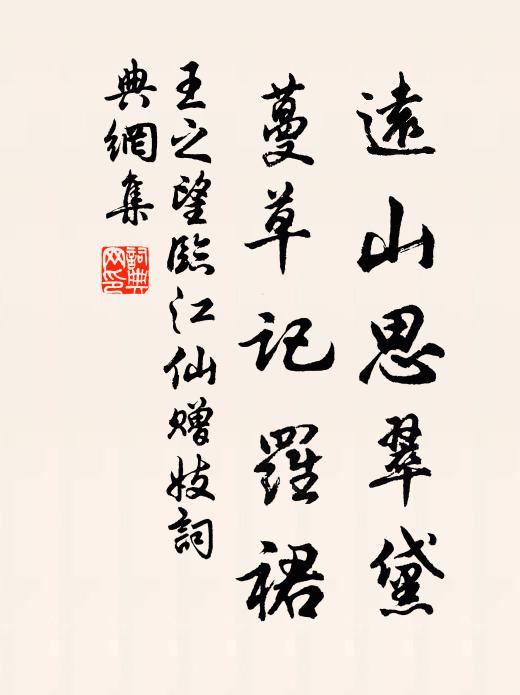 遠山思翠黛
蔓草記羅裙
王之望臨江仙贈妓詞
典網集
詞典网印